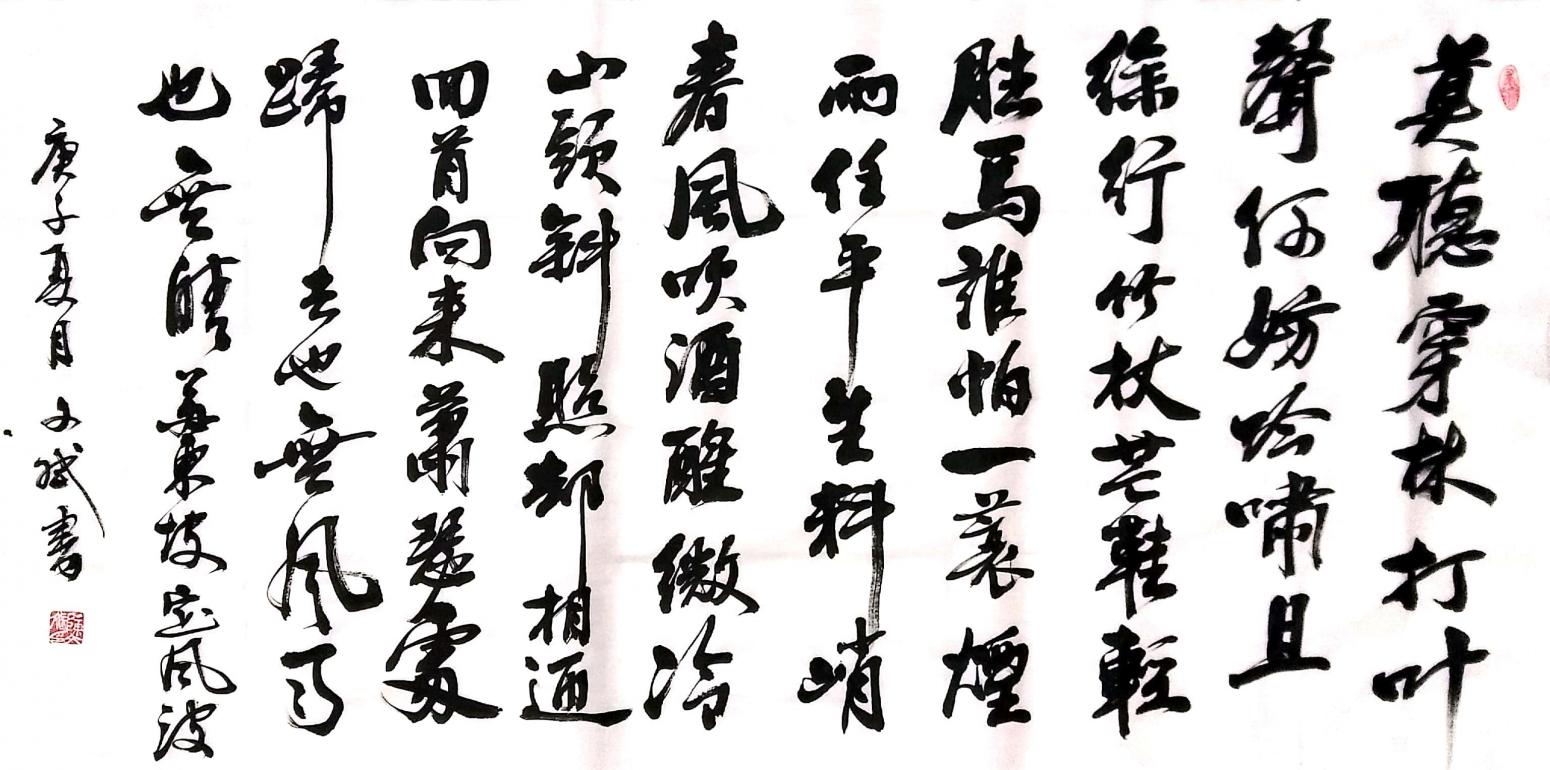 莫聽穿林打叶
聲何妨吟嘯且
徐行竹杖芒鞋輕
胜馬誰怕一蓑煙
雨任平生料峭
春風吹酒醒微冷
山頭斜照却相迎
回首向来蕭瑟處
歸去也無風雨
也無晴蘇東坡定風波
庚子夏月文斌書